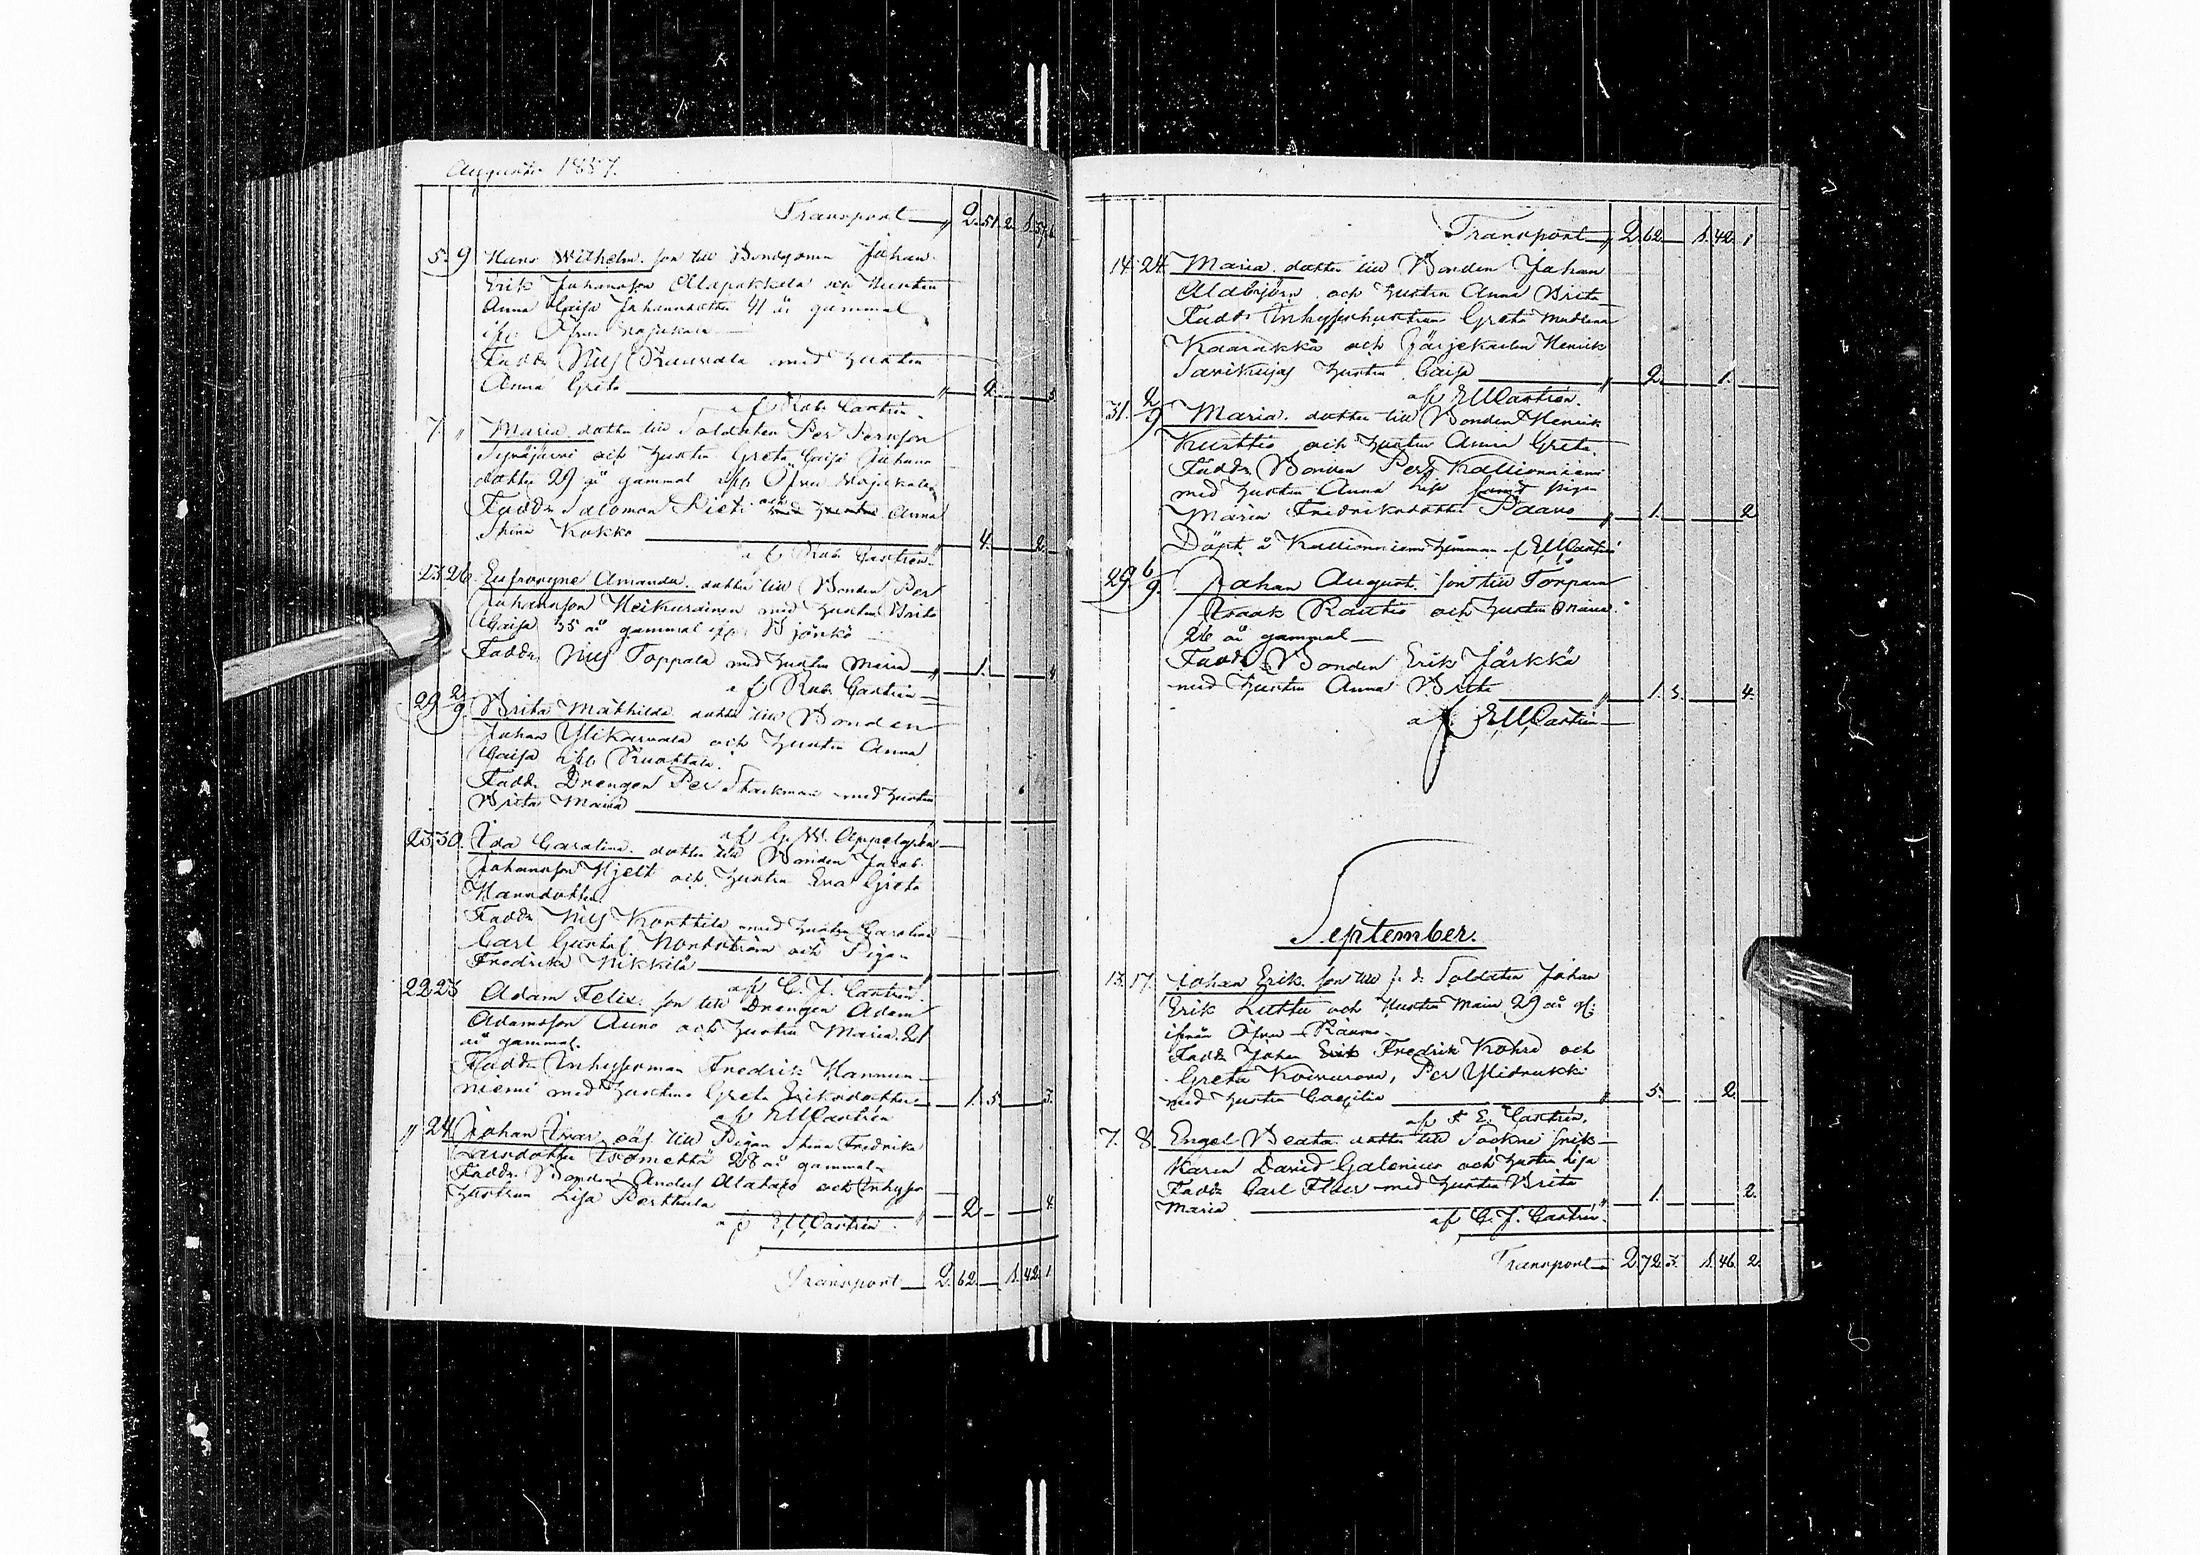 Augusti 1857.
Transport 2. 51. 2. 1. 37.
5. 9. Wilhelm. son till Bondsonen Johan
Erik Johansson Alapakkila och Hustru
Anna Caisa Johansdotter 41 år gammal
ifr. Öfver
Fadd. Nils Rauvala med hustru
Anna Greta 2. 3.
af Rob. Castrén.
7. " Maria. dotter till Soldaten Per Persson
och hustru Greta Caisa Johans
dotter 29 år gammal ifr. Öfver
Fadd. Salomon Pieti och med hustru Anna
Stina Kokko 4. 2.
af Rob. Castrén.
23. 26. Eufrosyne Amanda. dotter till Bonden Per
Johansson Heikurainen med hustru Brita
Caisa 35 år gammal ifr. Björkö
Fadd. Nils Toppala med hustru Maria 1. 4
af Rob. Castrén
29 2/9 Brita Mathilda. dotter till Bonden
Johan Ylikärvälä och hustru Anna
Caisa ifr. Ruottala.
Fadd. Drengen Per Stockman med hustru
Brita Maria
af G. W. Appelgren
23. 30. Ida Carolina. dotter till Bonden Jacob
Johansson Hjelt och hustru Eva Greta
Hansdotter.
Fadd. Nils Korttila med hustru Carolina
Carl Gustaf Nordström och Pigan
Fredrika Nikkilä
af C. J. Castrén.
22 23 Adam Felix. son till Drengen Adam
Adamsson Auno och hustru Maria 21
år gammal.
Fadd. Inhysesman Fredrik Hannun-
niemi med hustru Greta Eriksdotter 1. 5. 3.
af EMCastrén
" 24 Johan Ivar oäf till Pigan Stina Fredrika
Larsdotter 28 år gammal.
Fadd. Bonden Anders Alatalo och Inhyses
hustrun Lisa Perttula 2. 4.
af EMCastrén.
Transport 2. 62. 1. 42. 1
Transport 2. 62. 1. 42. 1
14. 24. Maria. dotter till Bonden Johan
Aldbjörn och hustru Anna Brita
Fadd. Inhyseshustrun Greta Madlena
Kaarakka och Färjekarlen Henrik
Sarikujas hustru Caisa 2. 1.
af EMCastrén.
31. 2/9 Maria. dotter till Bonden Henrik
Kurttio och hustru Anna Greta.
Fadd. Bonden Pers Kallioniemi
med hustru Anna Lisa samt pigan
Maria Fredriksdotter Paavo 1. 2
Döpt å Kallioniemi hemman af EMCastrén
29 6/9 Johan August. son till Torparn
Isaak Rautio och hustru Maria
26 år gammal
Fadd. Bonden Erik Järkkä
med hustru Anna Brita 1. 3. 4.
af EMCastrén
September.
13. 17. Johan Erik. son till f. d. Soldaten Johan
Erik Luttu och Hustru Maria 29 år gl:
ifrån Öfver-Raumo
Fadd. Johan Erik Fredrik Kohra och
Greta Koivuranna, Per Ylidrukki
med hustru Caecilia 5. 2.
af F. E. Castrén.
7. 8. Engel Beata. dotter till Sockne skrik-
karen David Galenius och hustru Lisa
Fadd. Carl Flser med hustru Brita
Maria 1. 2.
af C. J. Castrén.
Transport 2. 72. 3. 1. 46. 2.